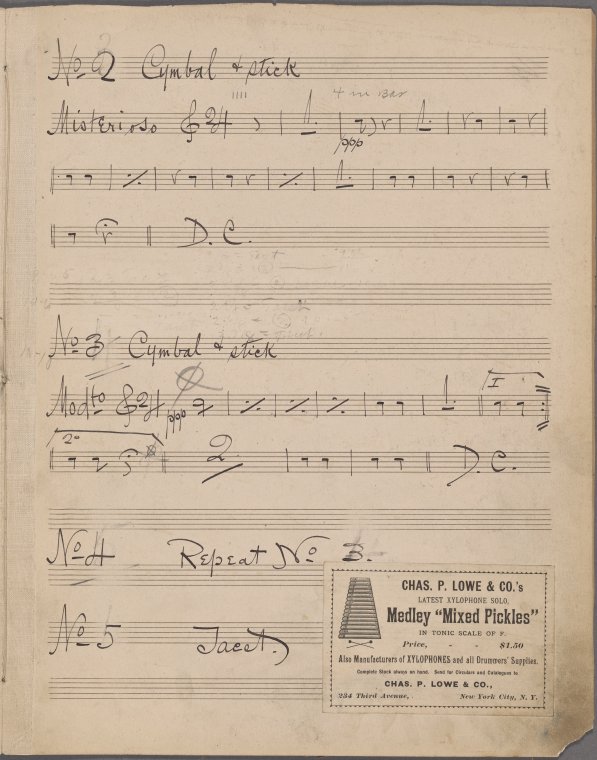 No 2 Cymbal & stick
4 in Bar
Misterioso 2/4
ppp
D.C.
No 3 Cymbal & stick
Modto 2/4 ppp
I
2o
2
D.C.
No 4 Repeat No 3.
No 5 Tacet.
CHAS. P. LOWE & CO.'s
LATEST XYLOPHONE SOLO,
Medley "Mixed Pickles"
IN TONIC SCALE OF F.
Price, - - $1.50
Also Manufacturers of XYLOPHONES and all Drummers' Supplies.
Complete Stock always on hand. Send for Circulars and Catalogues to
CHAS. P. LOWE & CO.,
234 Third Avenue, New York City, N. Y.